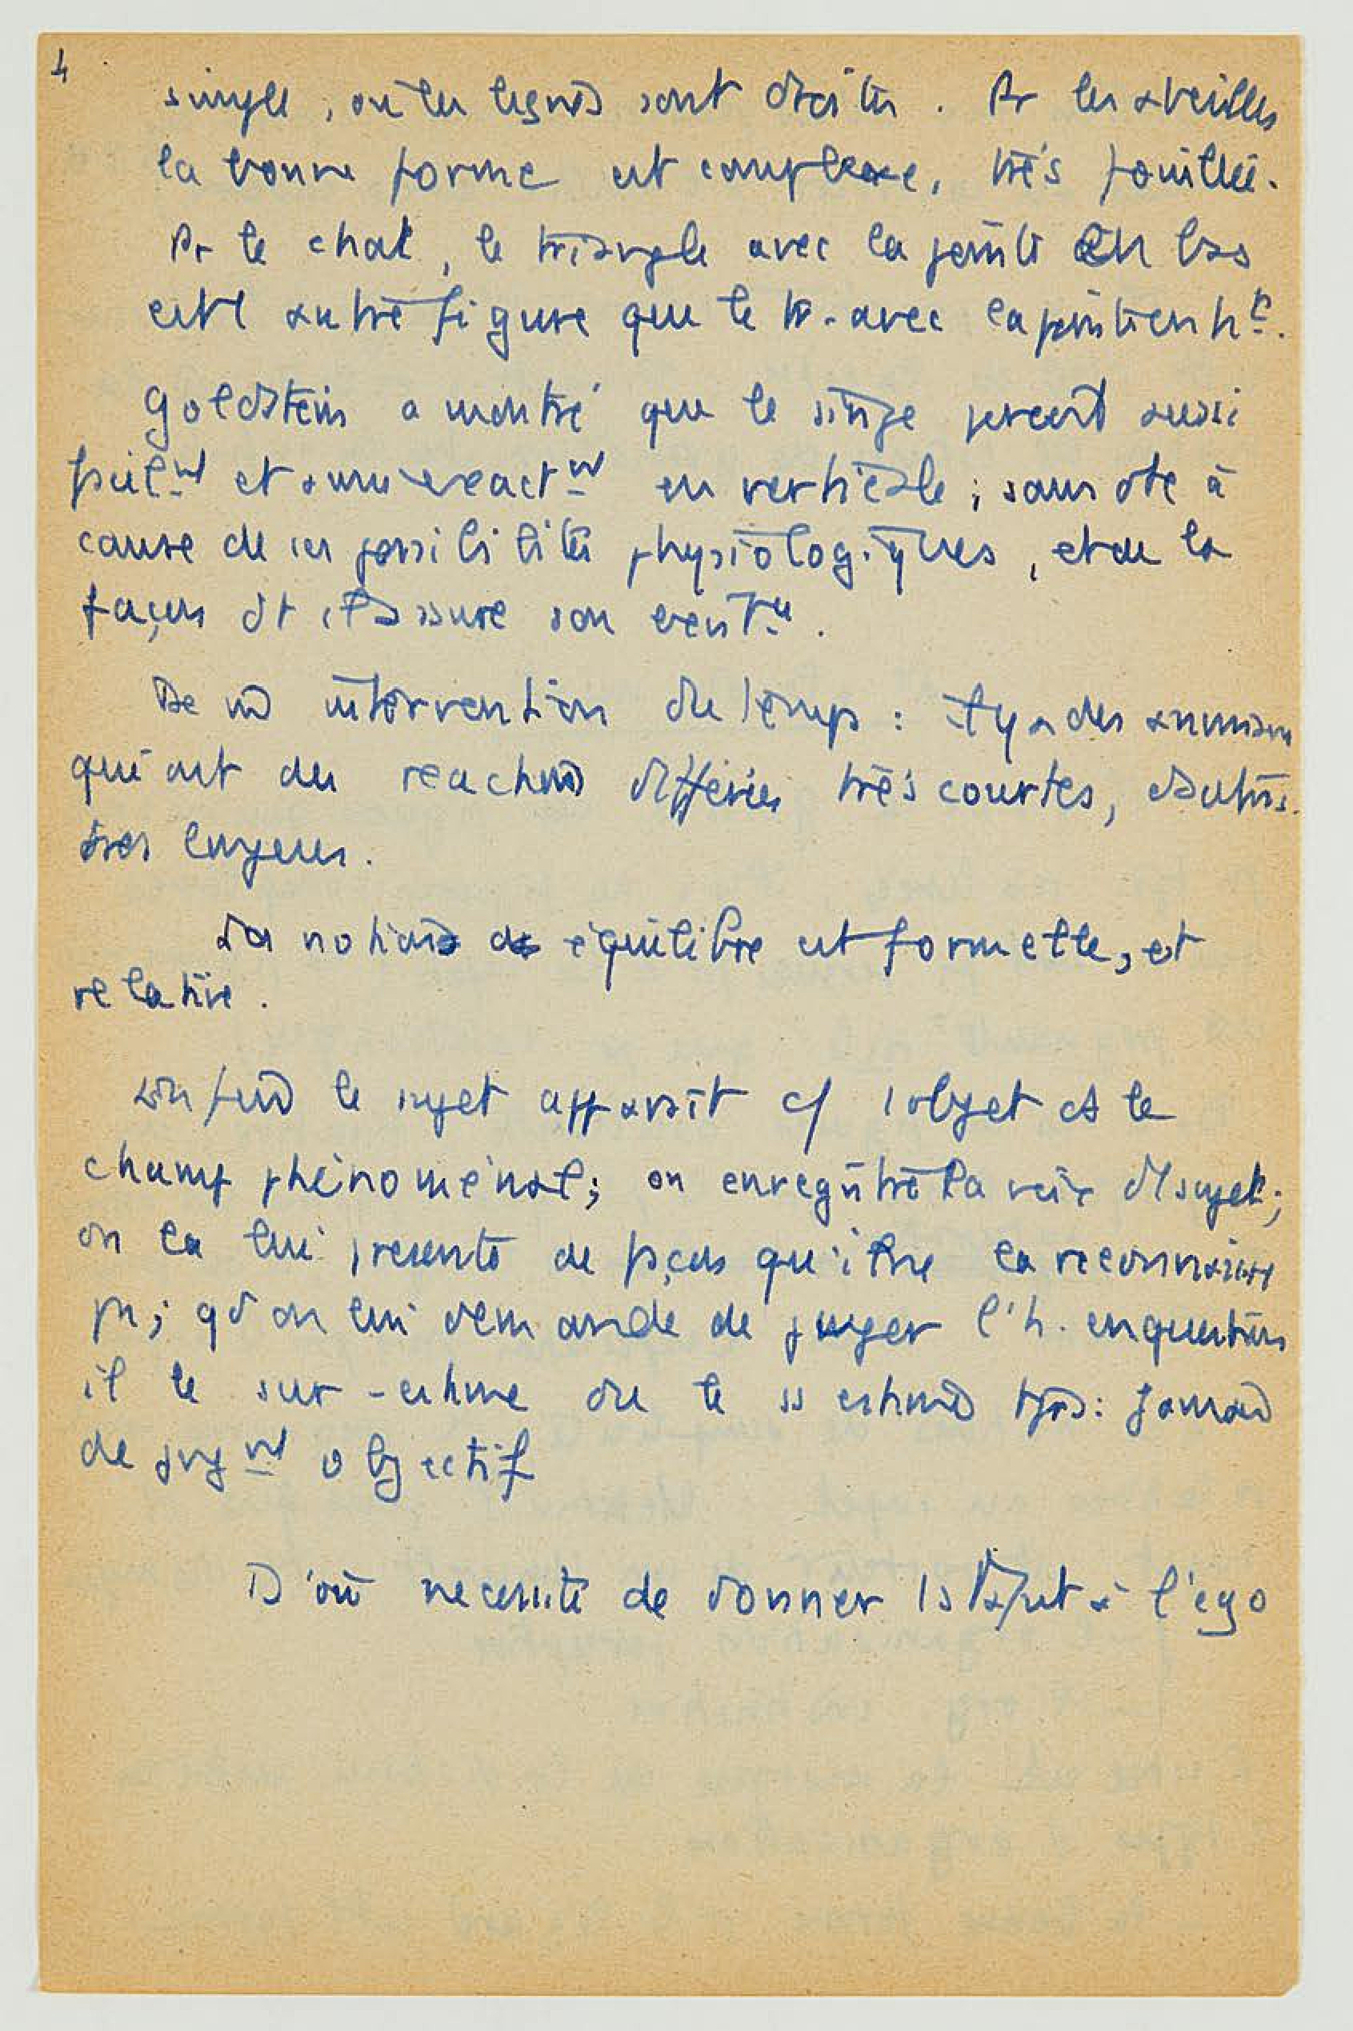 4
simple, où les lignes sont droites. Pr les abeilles
la bonne forme est complexe, très fouillée.
Pr le chat, le triangle avec la pointe en bas
est 1 autre figure que le tr. avec la pointe en ht.
Goldstein a montré que le singe perçoit aussi
facilnt et aussi exactnt en verticale; sans dte à
cause de ses possibilités physiologiques, et de la
façon dt il assure son
De m̂ intervention du temps : il y a des animaux
qui ont des réactions différées très courtes, d'autres
très longues.
La notion de équilibre est formelle, et
relative.
Enfin le sujet apparaît c/ 1 objet ds le
champ phénoménal; on enregistre la voix d'1 sujet;
on la lui présente de façon qu'il ne la reconnaisse
pas; qd on lui demande de juger l'h. en question
il le sur-estime ou le ss estime tjrs: jamais
de jugnt objectif
D'où nécessité de donner 1 statut à l'ego